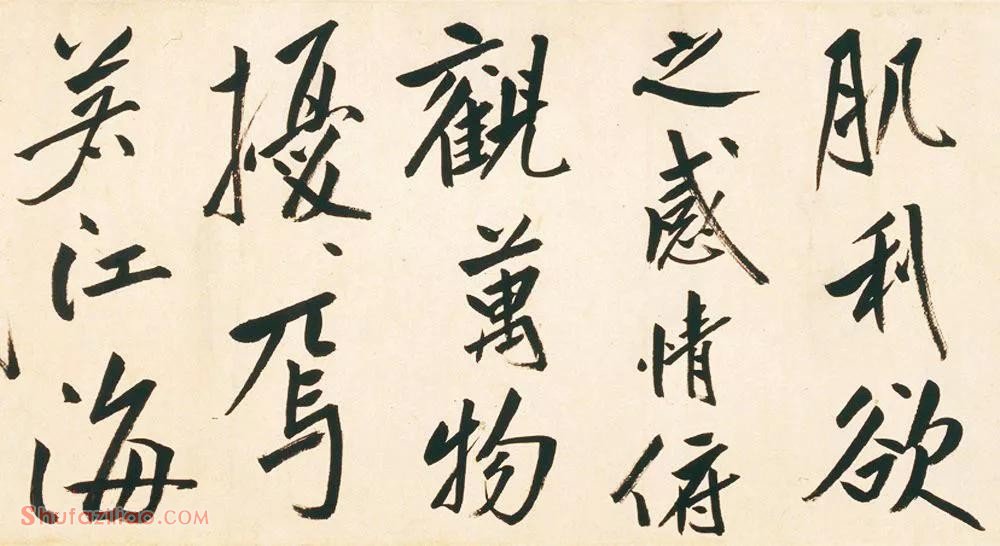 肌利欲
之感情俯
觀萬物
擾〻焉
若江海
Shufaziliao.COM